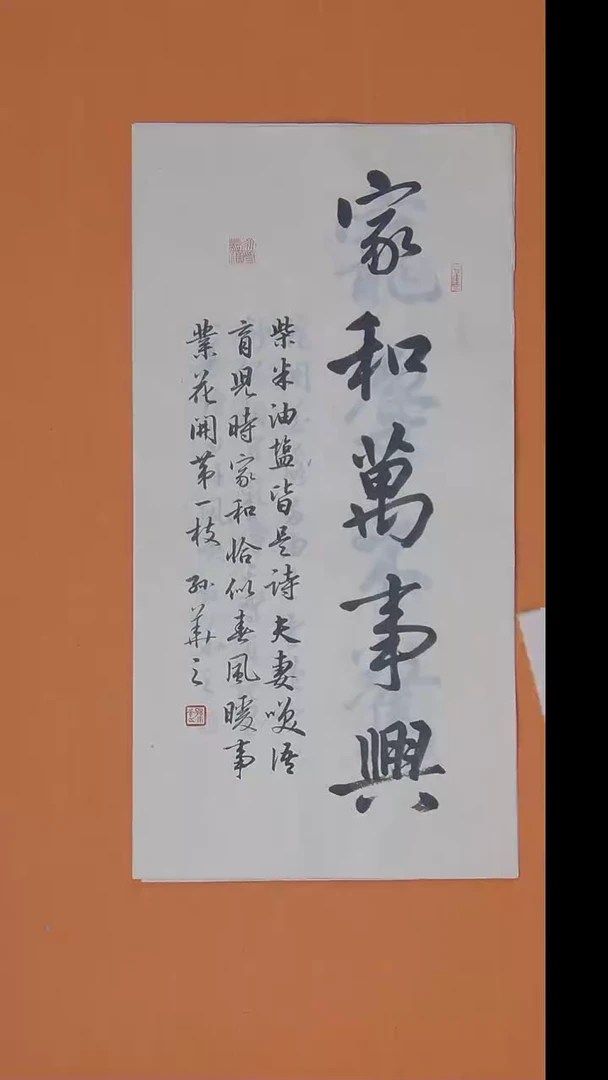 家和萬事興
柴米油塩皆是詩夫妻咲語
育児時家和恰似春風暖事
業花開苐一枝 孙華之